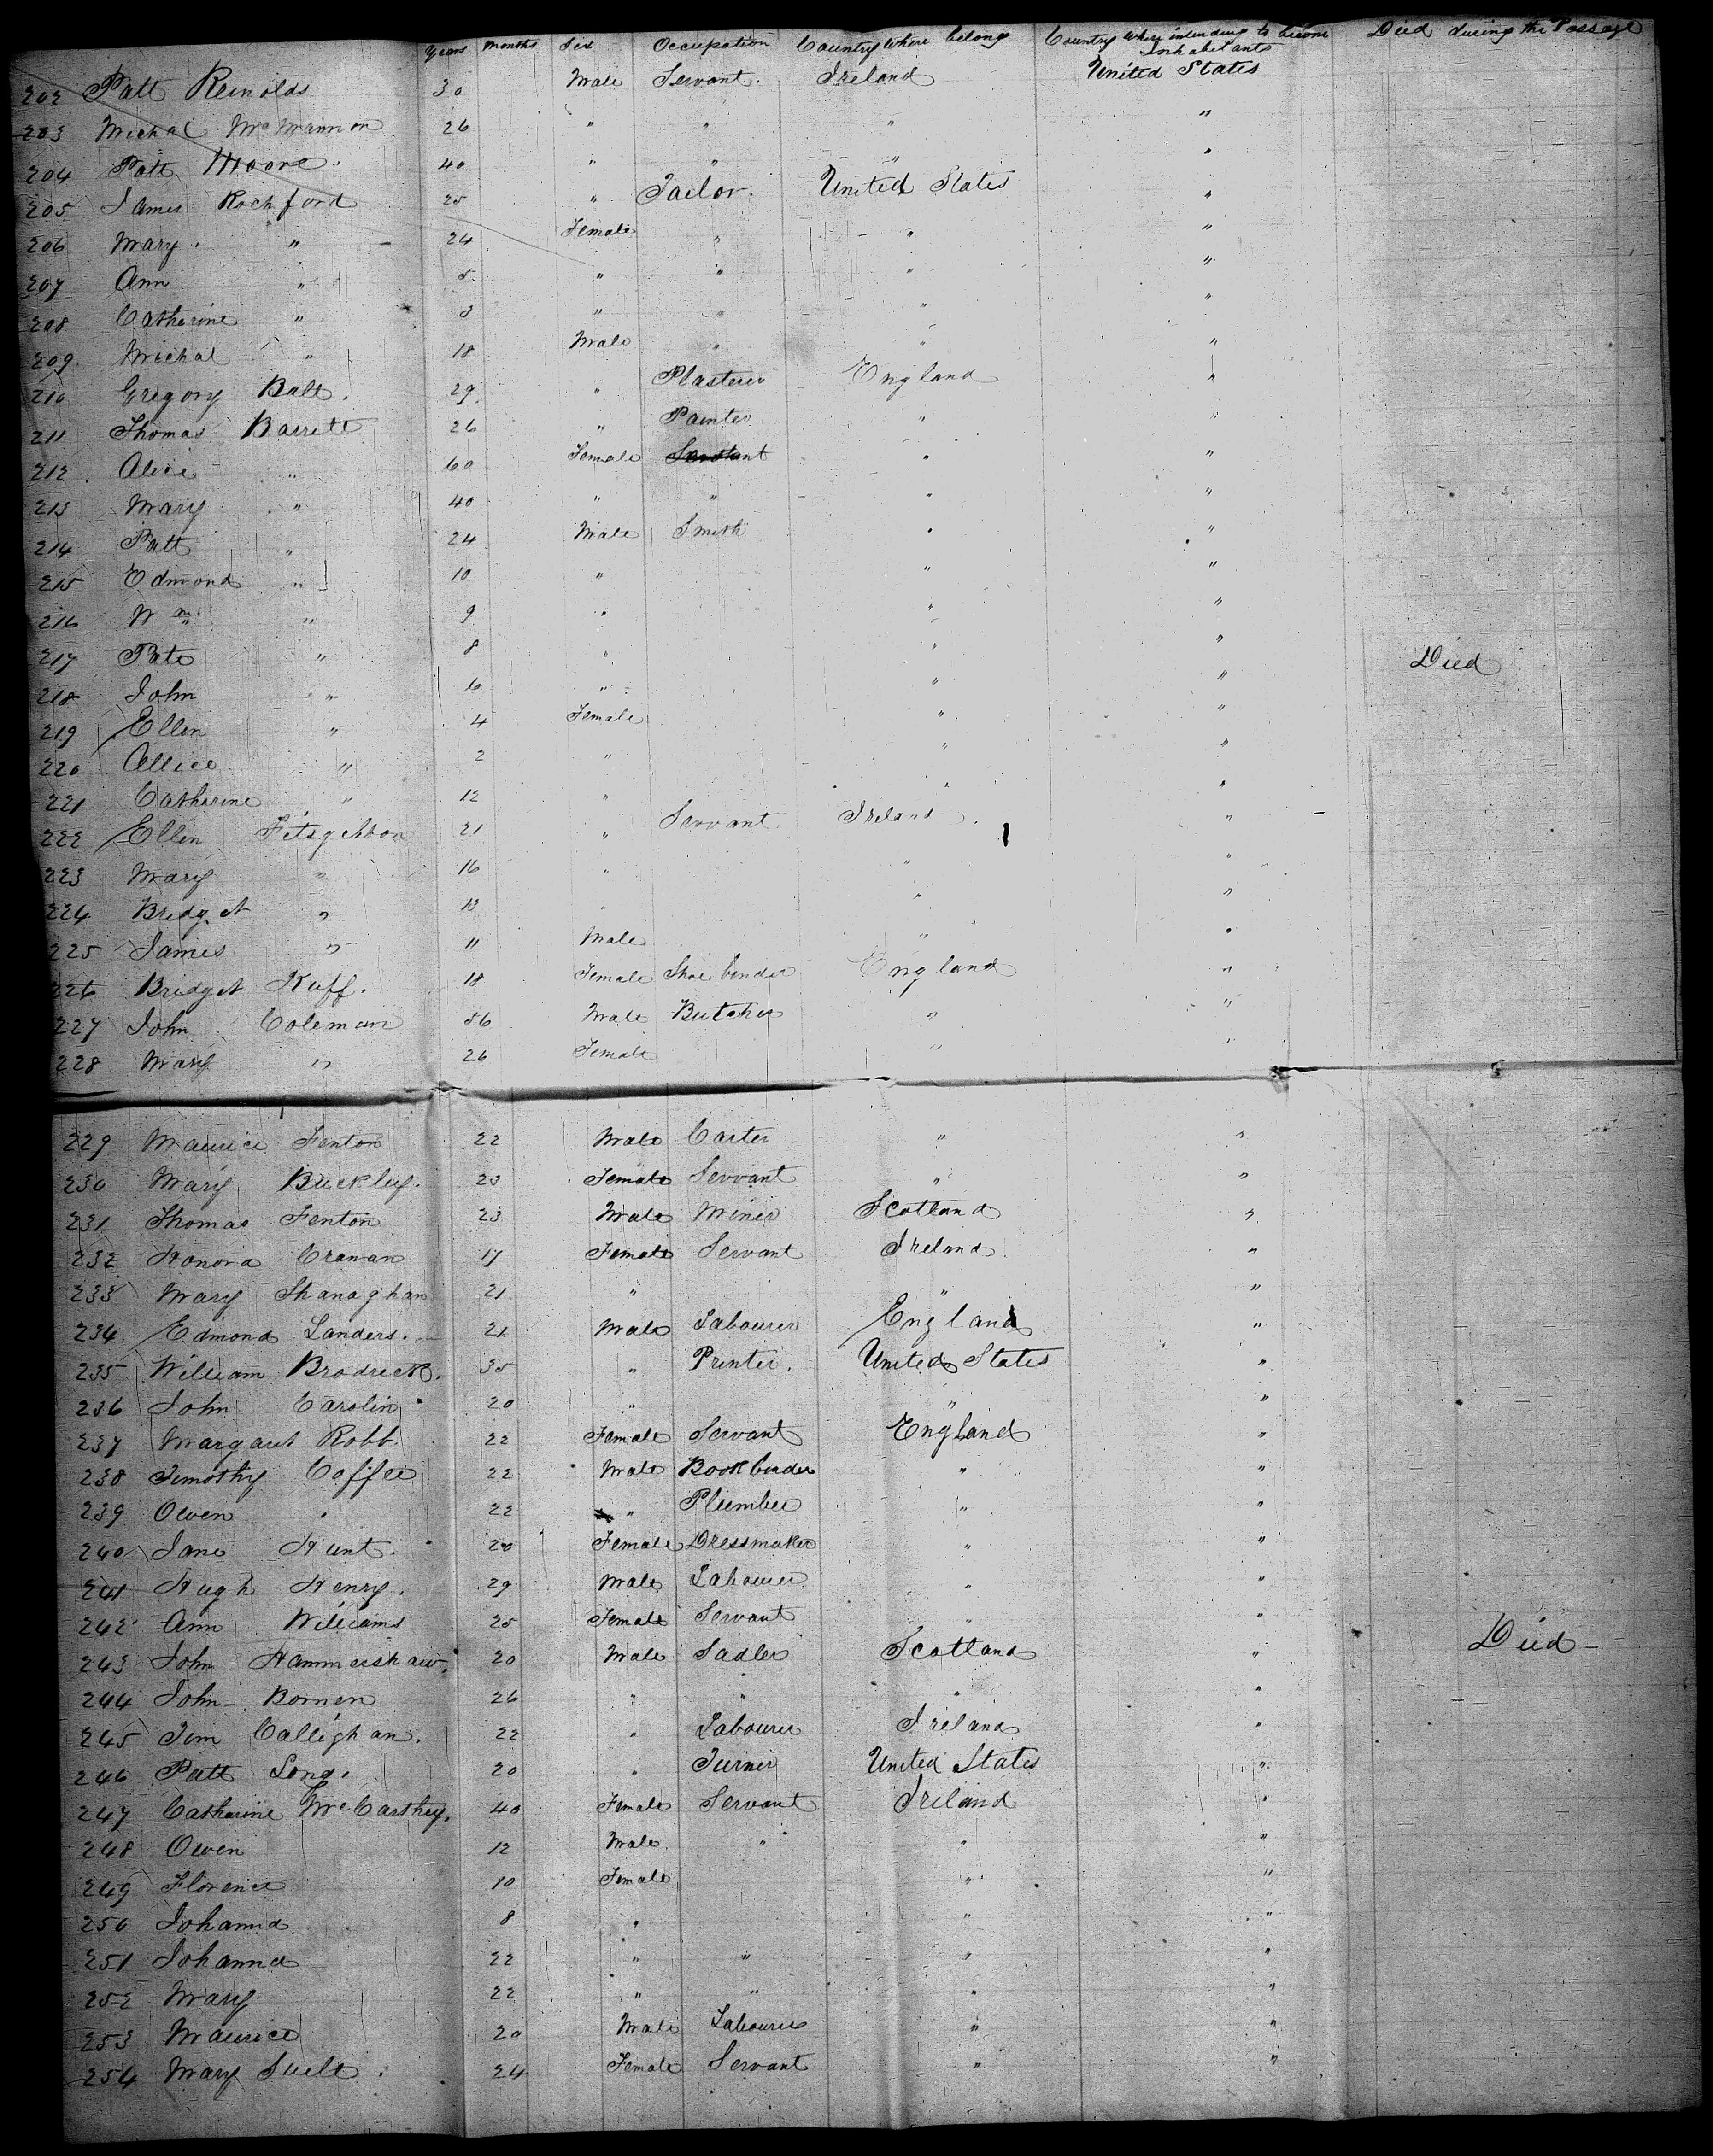 Years Months Sex Occupation Country Where belong Country where intending to become Inhabitants Died during the Passage
202 Patt Reinolds 30 Male Servant Ireland United States
203 Michal McMannon 26 " " " "
204 Patt Moore 40 " " " "
205 James Rochford 25 " Tailor United States "
206 Mary " 24 Female " " "
207 Ann " 5 " " " "
208 Catherine " 3 " " " "
209 Michal " 18 Male " " "
210 Gregory Balt 29 " Plasterer England "
211 Thomas Barrett 26 " Painter " "
212 Alice " 60 Female Servant " "
213 Mary " 40 " " " "
214 Patt " 24 Male Smith " "
215 Edmond " 10 " " "
216 Wm " 9 " " "
217 Pate " 8 " " " Died
218 John " 6 " " "
219 Ellen " 4 Female " "
220 Allice " 2 " " "
221 Catherine " 12 " " "
222 Ellen Fitsgebbon 21 " Servant Ireland "
223 Mary " 16 " " "
224 Bridget " 13 " " "
225 James " 11 Male " "
226 Bridget Kuff. 18 Female Shoe binder England "
227 John Coleman 56 Male Butcher " "
228 Mary " 26 Female " "
229 Maurice Fenton 22 Male Carter " "
230 Mary Buckley. 23 Female Servant " "
231 Thomas Fenton 23 Male Miner Scotland "
232 Honora Cranan 17 Female Servant Ireland "
233 Mary Shanaghan 21 " " "
234 Edmond Landers. 21 Male Labourer England "
235 William Brodrick. 35 " Printer. United States "
236 John Carolin 20 " " "
237 Margaret Robb. 22 Female Servant England "
238 Timothy Coffee 22 Male Bookbinder " "
239 Owen " 22 " Plumber " "
240 Jane Hunt. 20 Female Dressmaker " "
241 Hugh Henry. 29 Male Labourer " "
242 Ann Williams 25 Female Servant " " Died
243 John Hammershaw. 20 Male Sadler Scotland "
244 John Bornen 26 " " " "
245 Tim Callighan. 22 " Labourer Ireland "
246 Patt Long. 20 " Turner United States "
247 Catherine McCarthey. 40 Female Servant Ireland "
248 Owen 12 Male " " "
249 Florence 10 Female " "
250 Johanna 8 " " "
251 Johanna 22 " " " "
252 Mary 22 " " " "
253 Maurice 20 Male Labourer " "
254 Mary Suelt 24 Female Servant " "